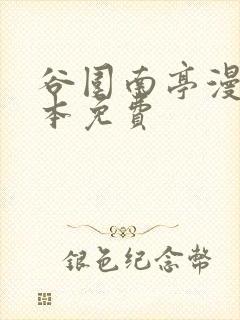 谷围南亭漫
本免費
银色纪念幣